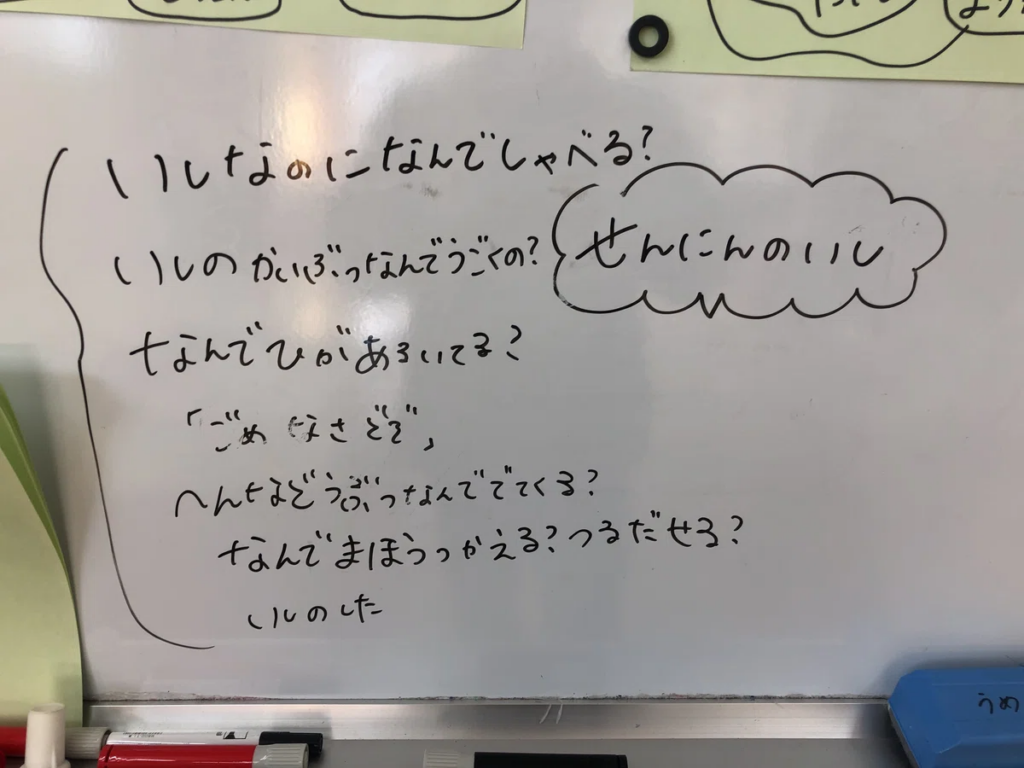 いしなのになんでしゃべる?
いしのかいぶつなんでうごくの?
せんにんのいし
なんでひがあるいてる?
「ごめ なさどぞ」
へんなどうぶつなんででてくる?
なんでまほうつかえる?つるだせる?
いしのした
うめ